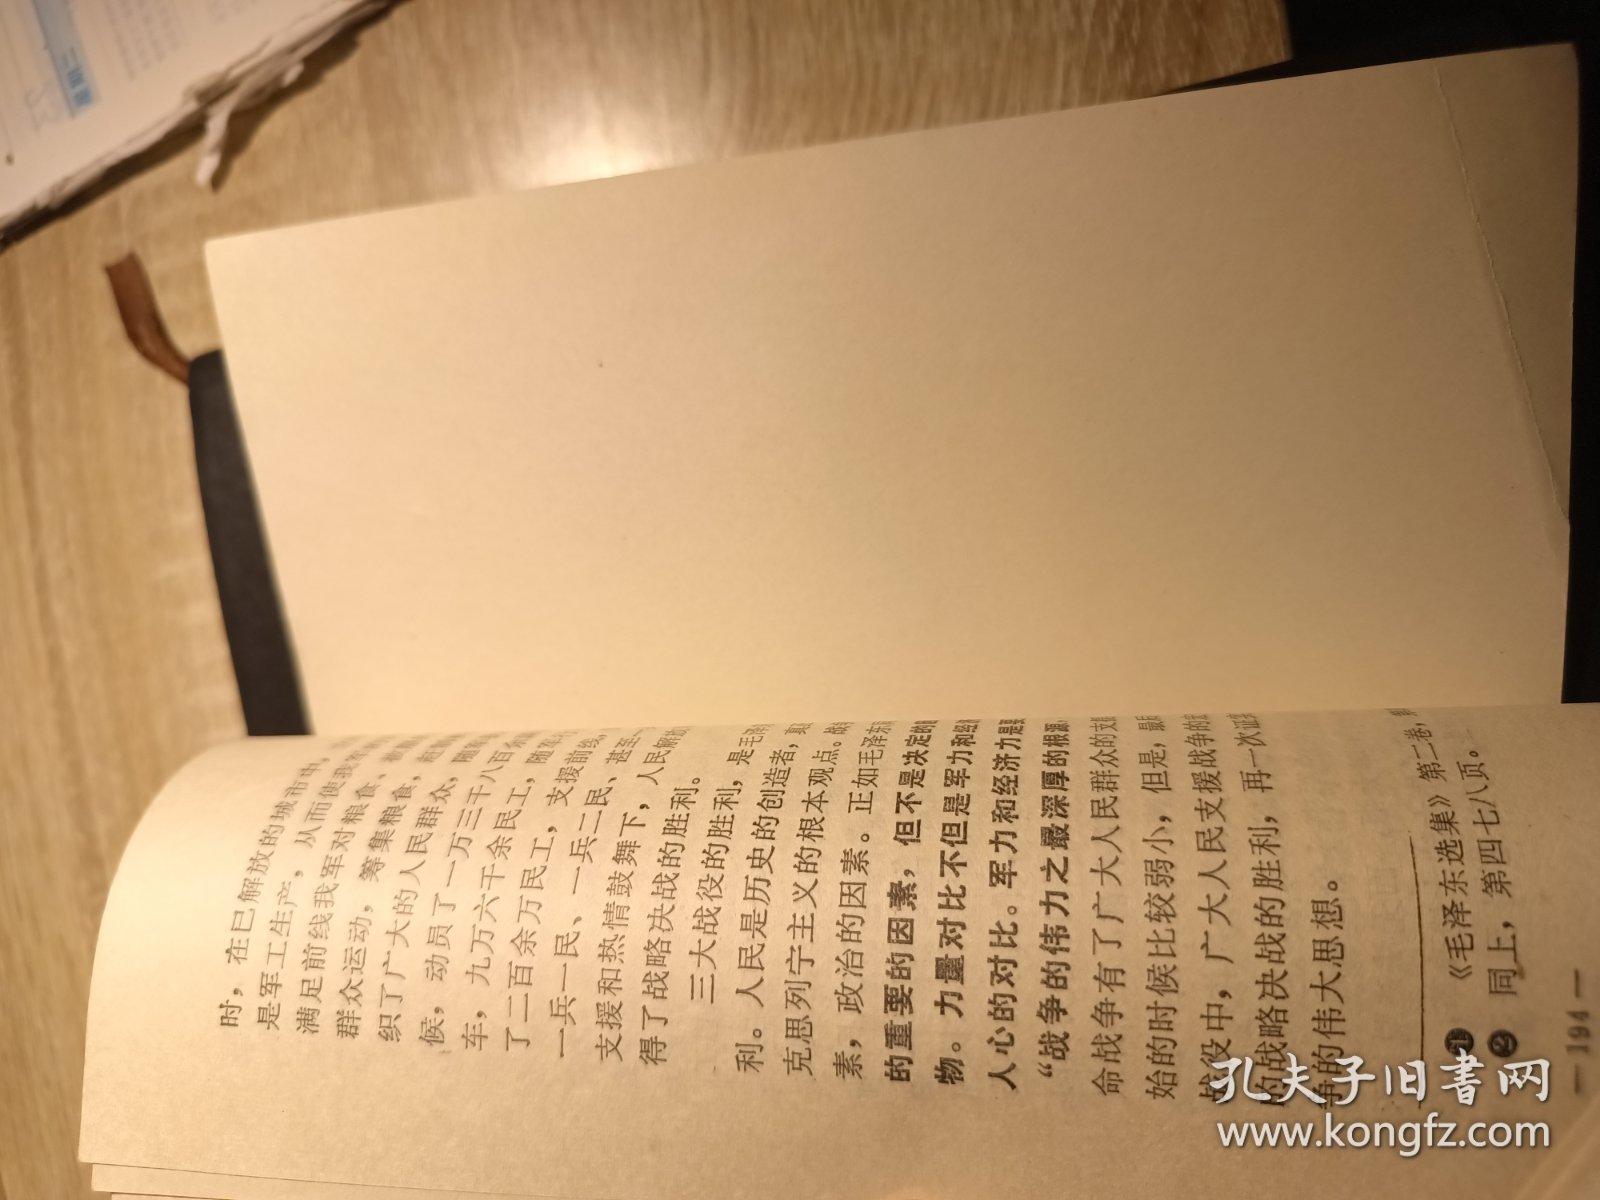 时，在已解放的城市中，
是军工生产，从而使我
满足前线我军对粮食、
群众运动，筹集粮食，
织了广大的人民群众，
候，动员了一万三千八百
车，九万六千余民工，随
了二百余万民工，支援前线，
一兵一民、一兵二民、甚至
支援和热情鼓舞下，人民解放
得了战略决战的胜利。
三大战役的胜利，是毛泽
利。人民是历史的创造者，真
克思列宁主义的根本观点。战
素，政治的因素。正如毛泽东
的重要的因素，但不是决定的
物。力量对比不但是军力和经
人心的对比。军力和经济力是
“战争的伟力之最深厚的根源
命战争有了广大人民群众的支
始的时候比较弱小，但是，最
战役中，广大人民支援战争的
的战略决战的胜利，再一次证
争的伟大思想。
❶ 《毛泽东选集》第二卷，
❷ 同上，第四七八页。
— 194 —
孔夫子旧书网
www.kongfz.com